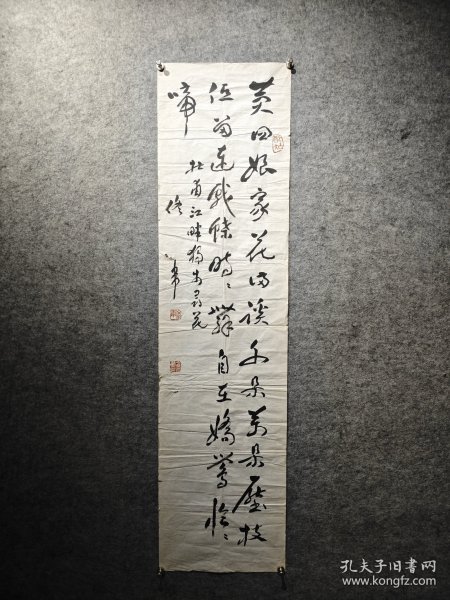 黄四娘家花满溪千朵万朵压枝
低留连戏蝶时时舞自在娇莺恰恰
啼
杜甫江畔独步寻花
孔夫子旧书网
www.kongfz.com